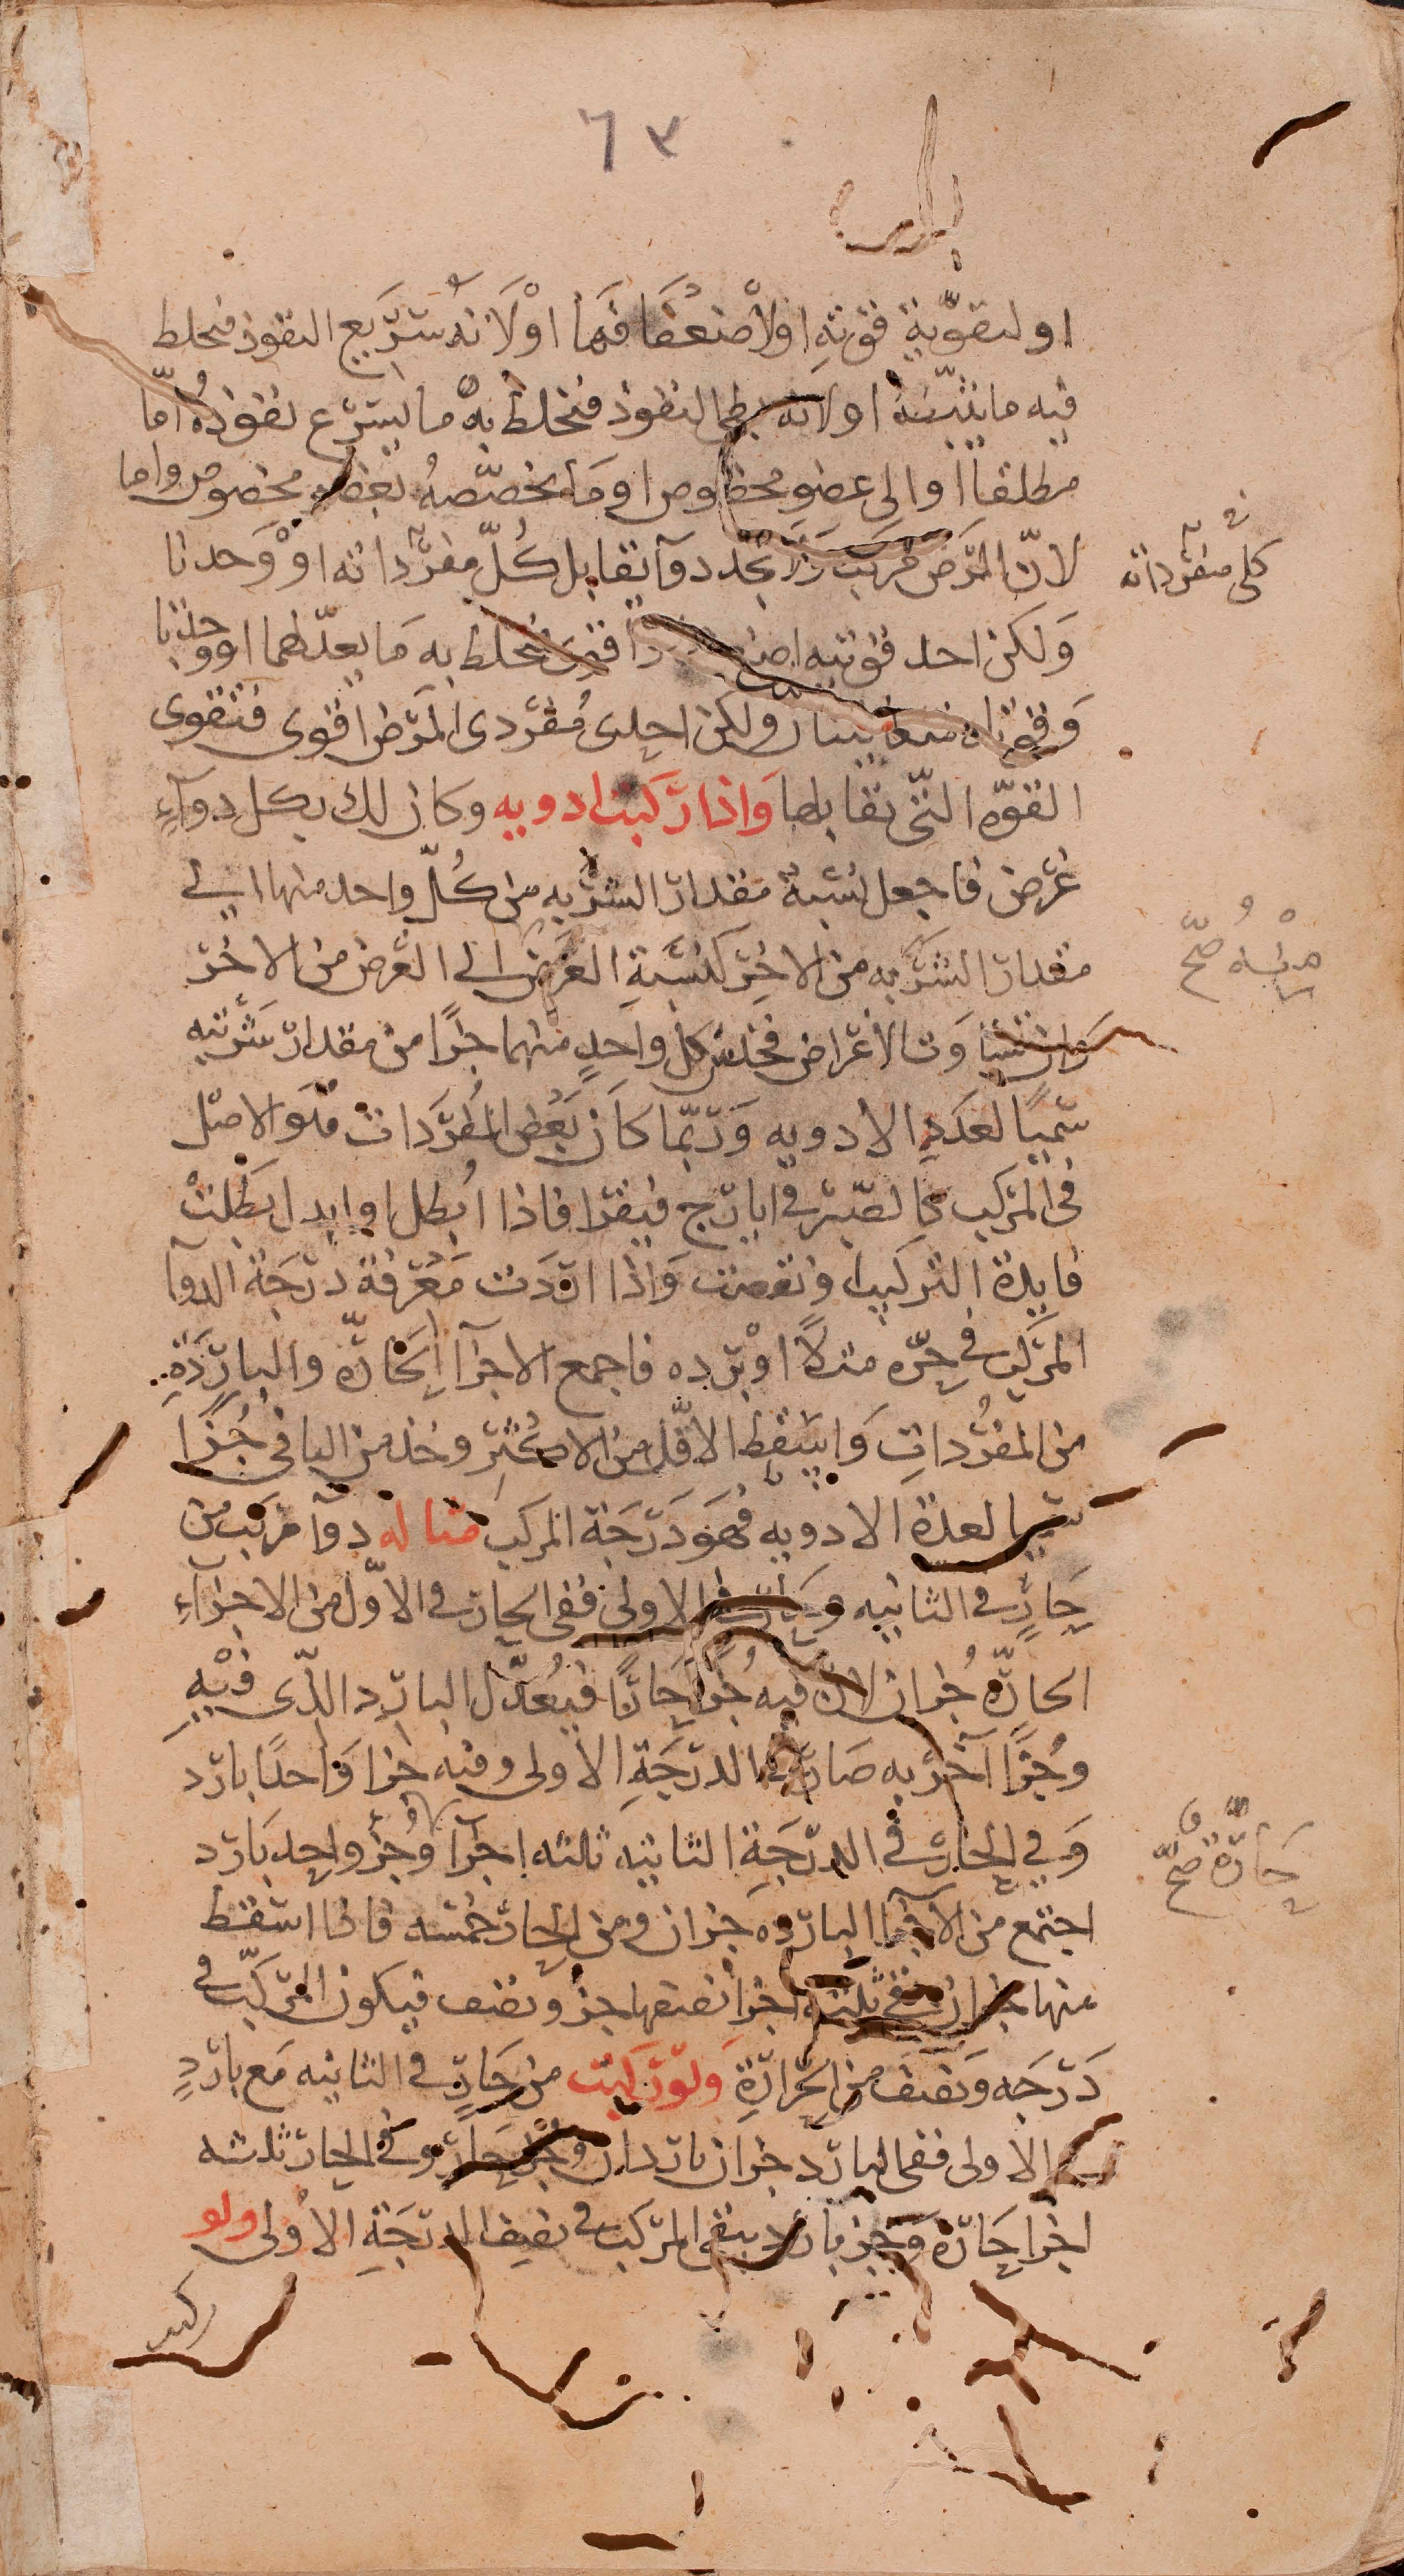 ٦٣
او لتقوية قوته او لاضعافها او لانه سريع النفوذ فيخلط
فيه ما يثبطه او لانه بطى النفوذ فيخلط به ما يسرع نفوذه اما
مطلقا او الى عضو مخصوص او ما يخصصه بعضو مخصوص واما
لان المرض مركب ولا نجد دوآ يقابل كل مفرداته او وجدنا
كل مفرداته
ولكن احد قوتيه اقوى فيخلط به ما يعدلهما او وجدنا
وقوتاه متساويتان ولكن احدى مفردى المرض اقوى فتقوى
القوه التى تقابلها واذا ركبت ادويه وكان لك بكل دوآء
غرض فاجعل نسبة مقدار الشربه من كل واحد منها الى
مقدار الشربه من الاخر كنسبة الغرض الى الغرض من الاخر
صح
وان تساوت الاغراض فخذ من كل واحد منهما جزا من مقدار شربته
سميا لعدد الادويه وربما كان بعض المفردات هو الاصل
فى المركب كالصبر فى ايارج فيقرا فاذا ابطل او ابدل بطلت
فايدة التركيب ونقصت واذا اردت معرفة درجة الدوآ
المركب فى حره مثلا او برده فاجمع الاجزآ الحارة والباردة
من المفردات واسقط الاقل من الاكثر وخذ من الباقى جزا
سميا لعدة الادويه فهو درجة المركب مثاله دوآ مركب من
حار فى الثانيه وحار فى الاولى ففى الحار فى الاول من الاجزآء
الحارة جزان لان فيه جزا حارا فيعدل البارد الذى فيه
وجزا آخر به صار فى الدرجة الاولى وفيه جزا واحدا بارد
وفى الحار فى الدرجة الثانيه ثلثه اجزآ وجزؤ واحد بارد
حارة صح
اجتمع من الاجزآ البارده جزان ومن الحار خمسه فاذا اسقط
منها جزان بقى ثلثه اجزا نصفها جزؤ ونصف فيكون المركب فى
درجه ونصف من الحرارة ولو ركبت من حار فى الثانيه مع بارد
فى الاولى ففى البارد جزان باردان وجزؤ حار وفى الحار ثلثه
اجزا حارة وجزؤ بارد يبقى المركب فى نصف الدرجة الاولى ولو
ركبت